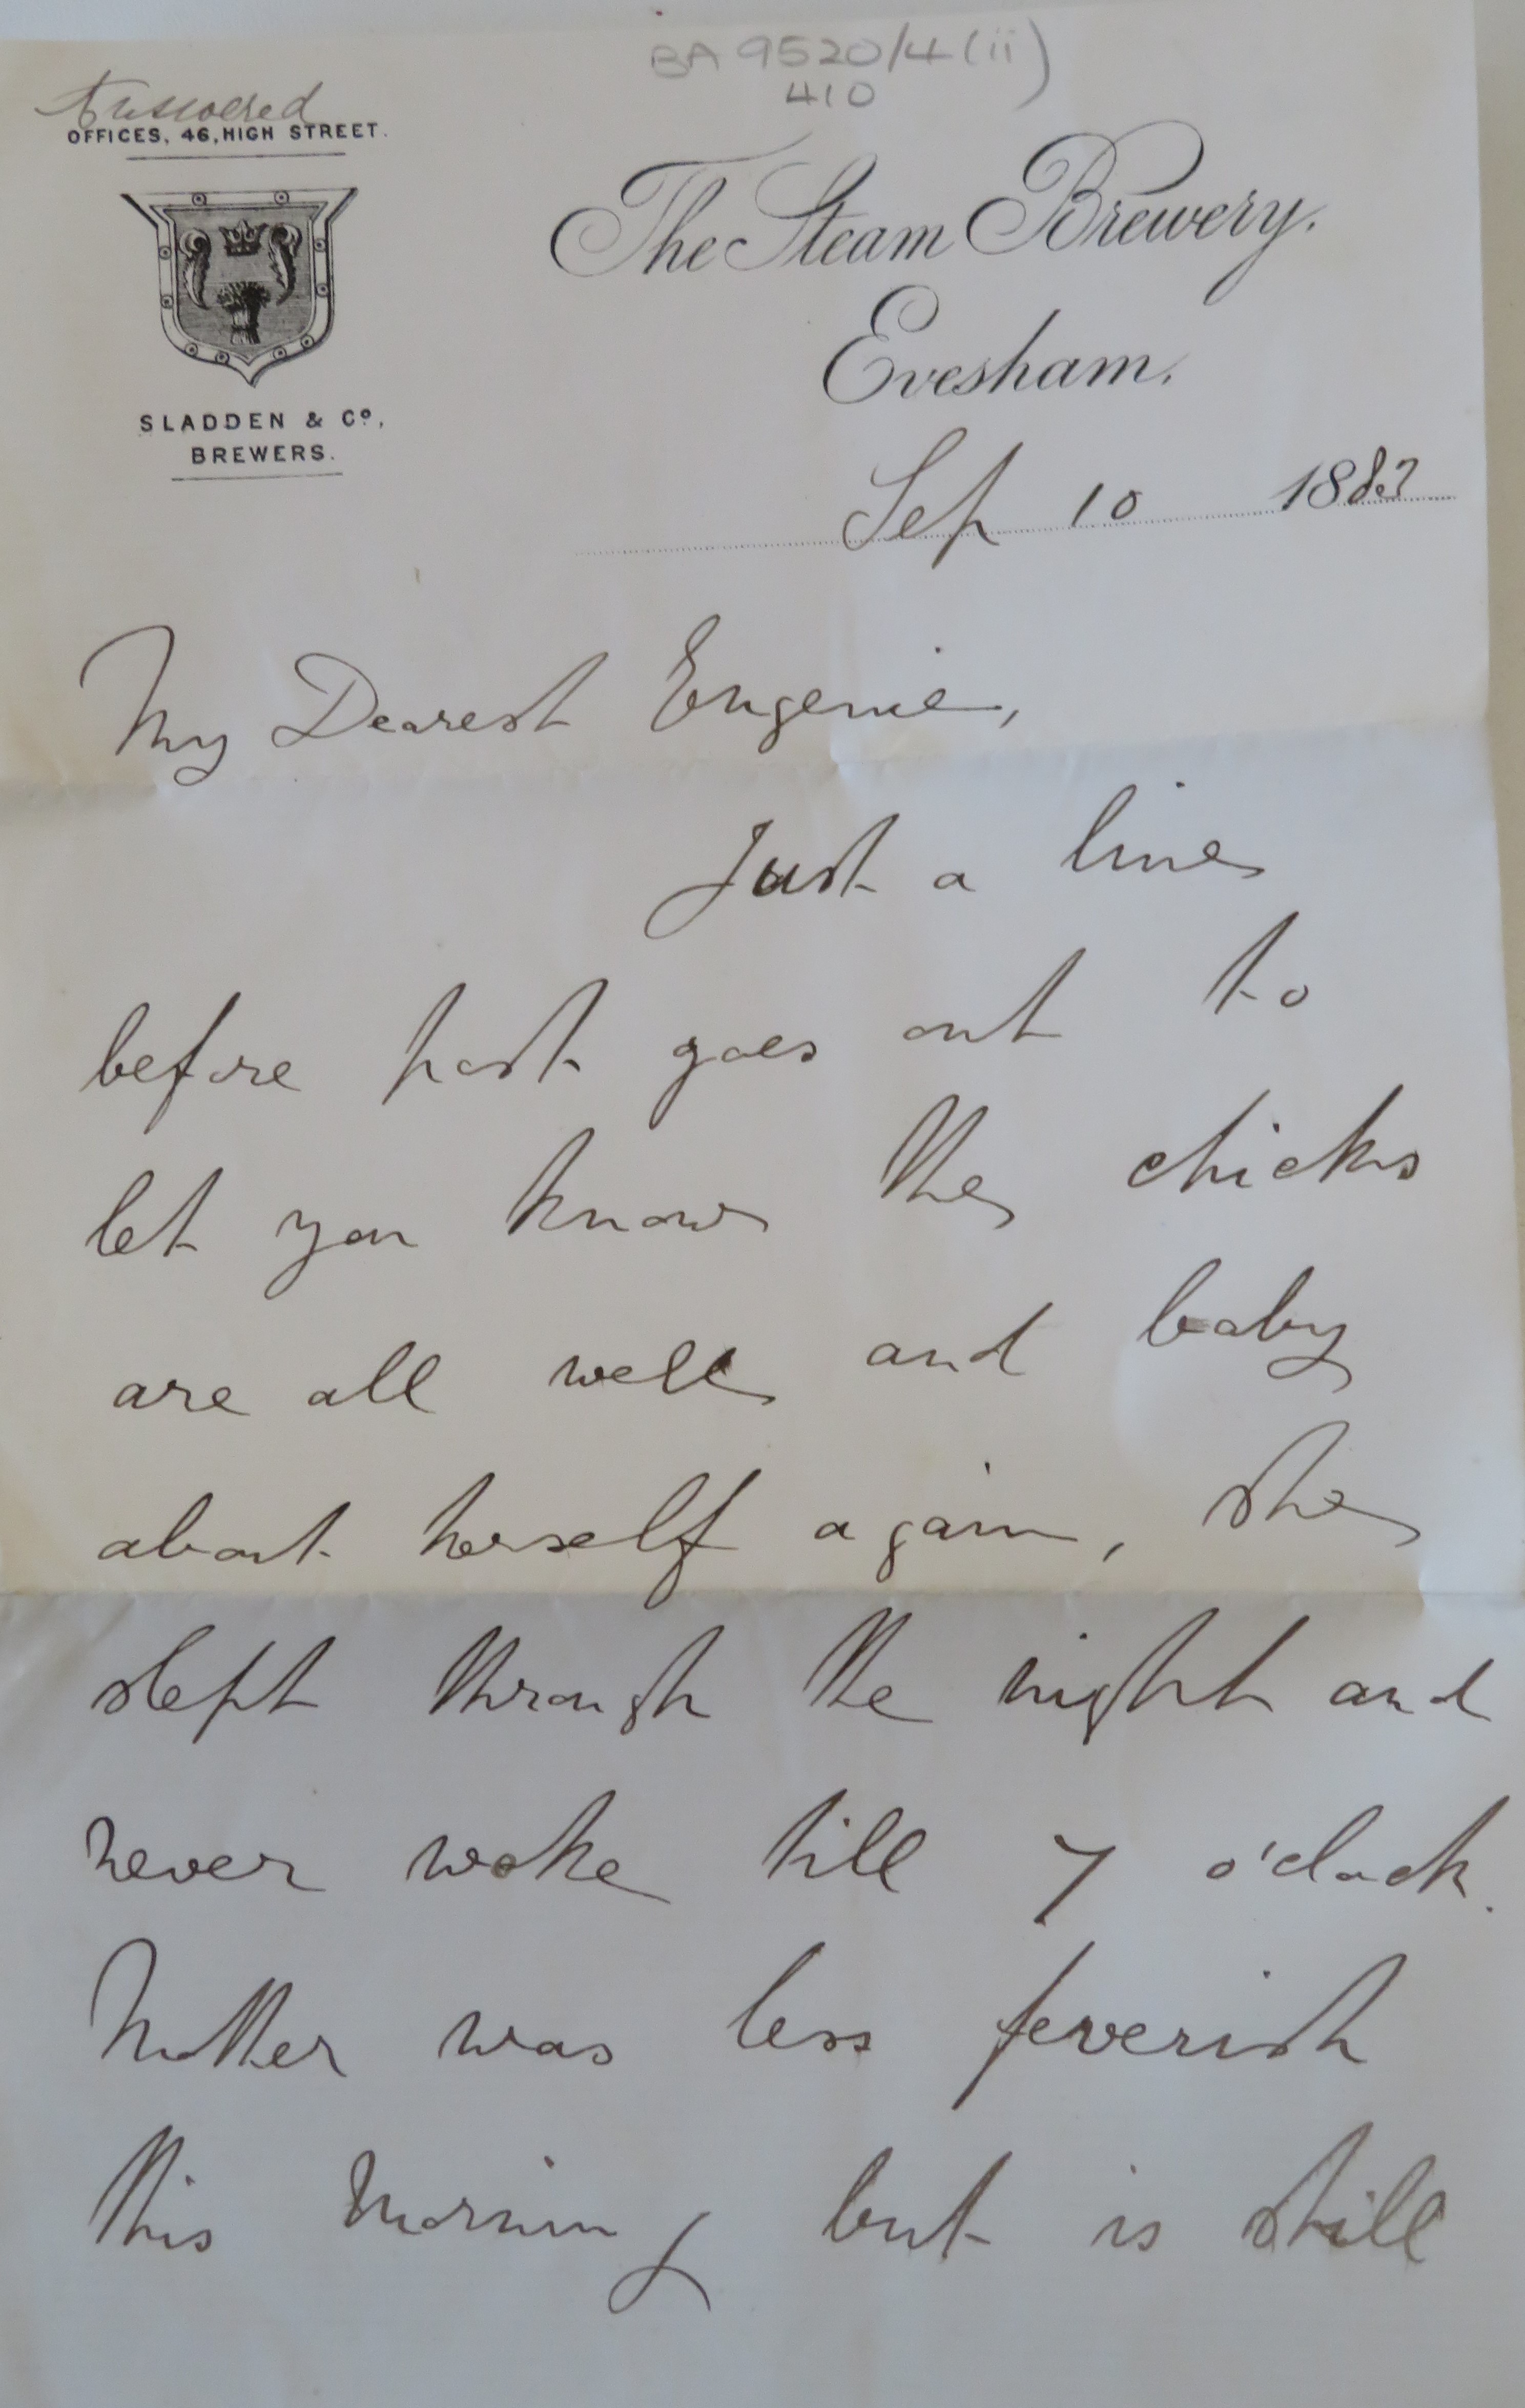 BA 9520/4(ii)
410
Answered
OFFICES, 46, HIGH STREET.
The Steam Brewery,
Evesham.
SLADDEN & Co,
BREWERS.
Sep 10 1883
My Dearest Eugenie,
Just a line
before post goes out to
let you know the chicks
are all well and baby
about herself again, she
slept through the night and
never woke till 7 o'clock.
Mother was less feverish
this morning but is still